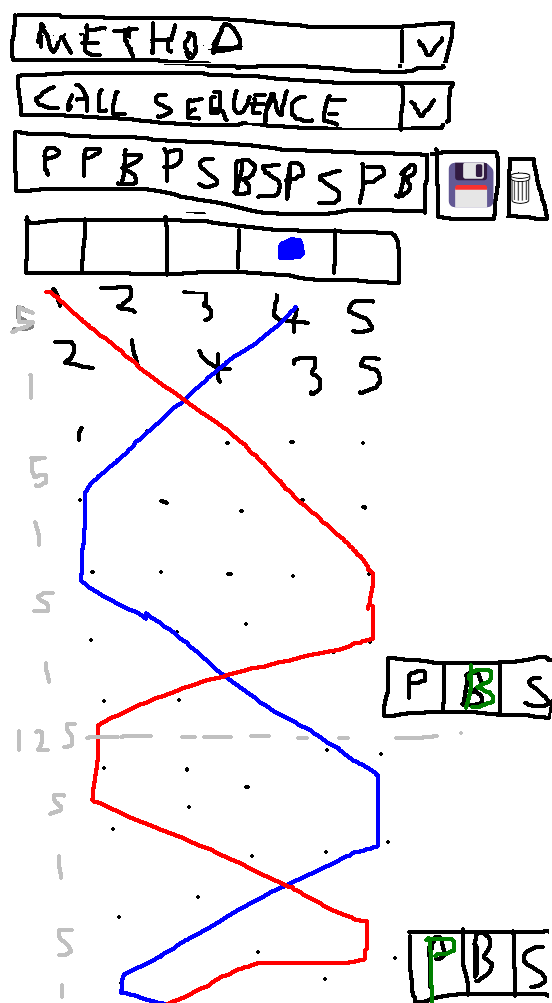 METHOD V
CALL SEQUENCE V
P P B P S B S P S P B
1 2 3 4 5
5
2 1 4 3 5
1
5
1
5
1
P B S
125
5
1
5
P B S
1